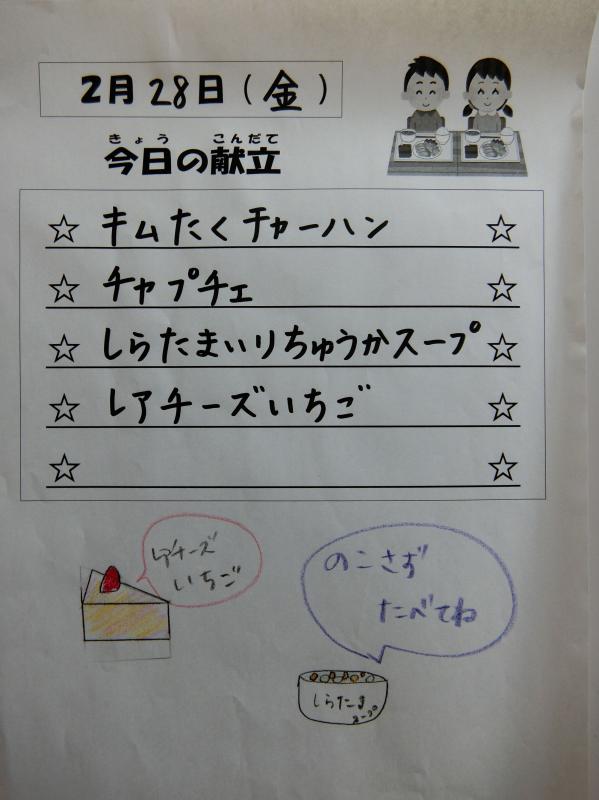 2月28日(金)
きょう こんだて
今日の献立
☆ キムたくチャーハン ☆
☆ チャプチェ ☆
☆ しらたまいりちゅうかスープ ☆
☆ レアチーズいちご ☆
☆ ☆
レアチーズ
いちご
のこさず
たべてね
しらたま
スープ